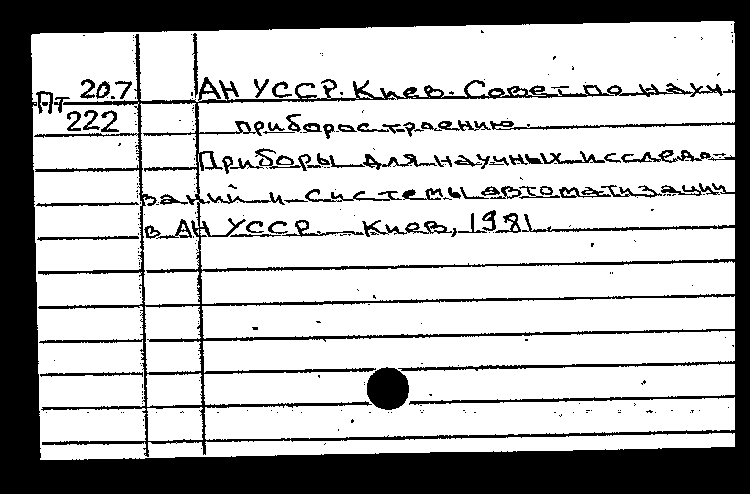 Пт 20.7 АН УССР. Киев. Совет по науч
222 приборостроению.
Приборы для научных исследо-
ваний и системы автоматизации
в АН УССР. Киев, 1981.